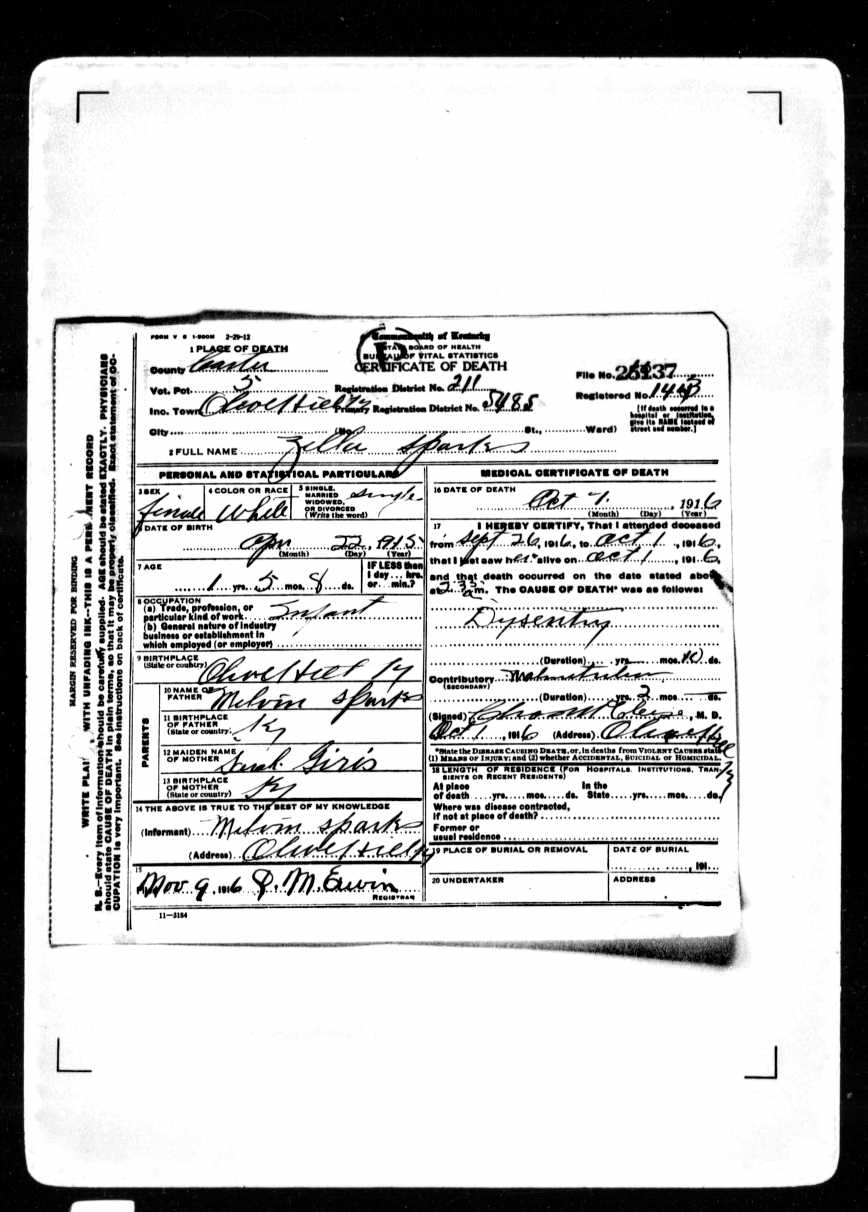 FORM V S 1-500M 2-29-12
Commonwealth of Kentucky
STATE BOARD OF HEALTH
BUREAU OF VITAL STATISTICS
CERTIFICATE OF DEATH
1 PLACE OF DEATH
County Carter
Vot. Pct. 5 Registration District No. 211
Inc. Town Olive Hill Ky Primary Registration District No. 5485
City (No. St., Ward)
File No. 25137
Registered No.
[If death occurred in a hospital or institution, give its NAME instead of street and number.]
2 FULL NAME Zella Sparks
PERSONAL AND STATISTICAL PARTICULARS
3 SEX female
4 COLOR OR RACE White
5 SINGLE, MARRIED WIDOWED, OR DIVORCED (Write the word) single
6 DATE OF BIRTH
Apr 22, 1915
(Month) (Day) (Year)
7 AGE
1 yrs. 5 mos. 8 ds.
IF LESS than 1 day... hrs. or... min.?
8 OCCUPATION
(a) Trade, profession, or particular kind of work Infant
(b) General nature of industry business or establishment in which employed (or employer)
9 BIRTHPLACE (State or country) Olive Hill Ky
PARENTS
10 NAME OF FATHER Melvin Sparks
11 BIRTHPLACE OF FATHER (State or country) Ky
12 MAIDEN NAME OF MOTHER
13 BIRTHPLACE OF MOTHER (State or country) Ky
14 THE ABOVE IS TRUE TO THE BEST OF MY KNOWLEDGE
(Informant) Melvin Sparks
(Address) Olive Hill Ky
15
Nov 9, 1916 M. Erwin
REGISTRAR
11—3184
MEDICAL CERTIFICATE OF DEATH
16 DATE OF DEATH
Oct 1, 1916
(Month) (Day) (Year)
17 I HEREBY CERTIFY, That I attended deceased
from Sept 26, 1916, to Oct 1, 1916,
that I last saw her alive on Oct 1, 1916,
and that death occurred on the date stated above
at m. The CAUSE OF DEATH* was as follows:
Dysentry
(Duration) yrs. mos. 10 ds.
Contributory Malnutrition
(SECONDARY)
(Duration) yrs. 3 mos. ds.
(Signed) M. D.
Oct 1, 1916 (Address) Olive Hill Ky
*State the DISEASE CAUSING DEATH, or, in deaths from VIOLENT CAUSES state (1) MEANS OF INJURY; and (2) whether ACCIDENTAL, SUICIDAL or HOMICIDAL.
18 LENGTH OF RESIDENCE (FOR HOSPITALS, INSTITUTIONS, TRANSIENTS OR RECENT RESIDENTS)
At place of death yrs. mos. ds. In the State yrs. mos. ds.
Where was disease contracted,
if not at place of death?
Former or
usual residence
19 PLACE OF BURIAL OR REMOVAL
DATE OF BURIAL
191
20 UNDERTAKER
ADDRESS
MARGIN RESERVED FOR BINDING
WRITE PLAI WITH UNFADING INK—THIS IS A PERM NENT RECORD
N. B.—Every item of information should be carefully supplied. AGE should be stated EXACTLY. PHYSICIANS
should state CAUSE OF DEATH in plain terms, so that it may be properly classified. Exact statement of OC-
CUPATION is very important. See instructions on back of certificate.